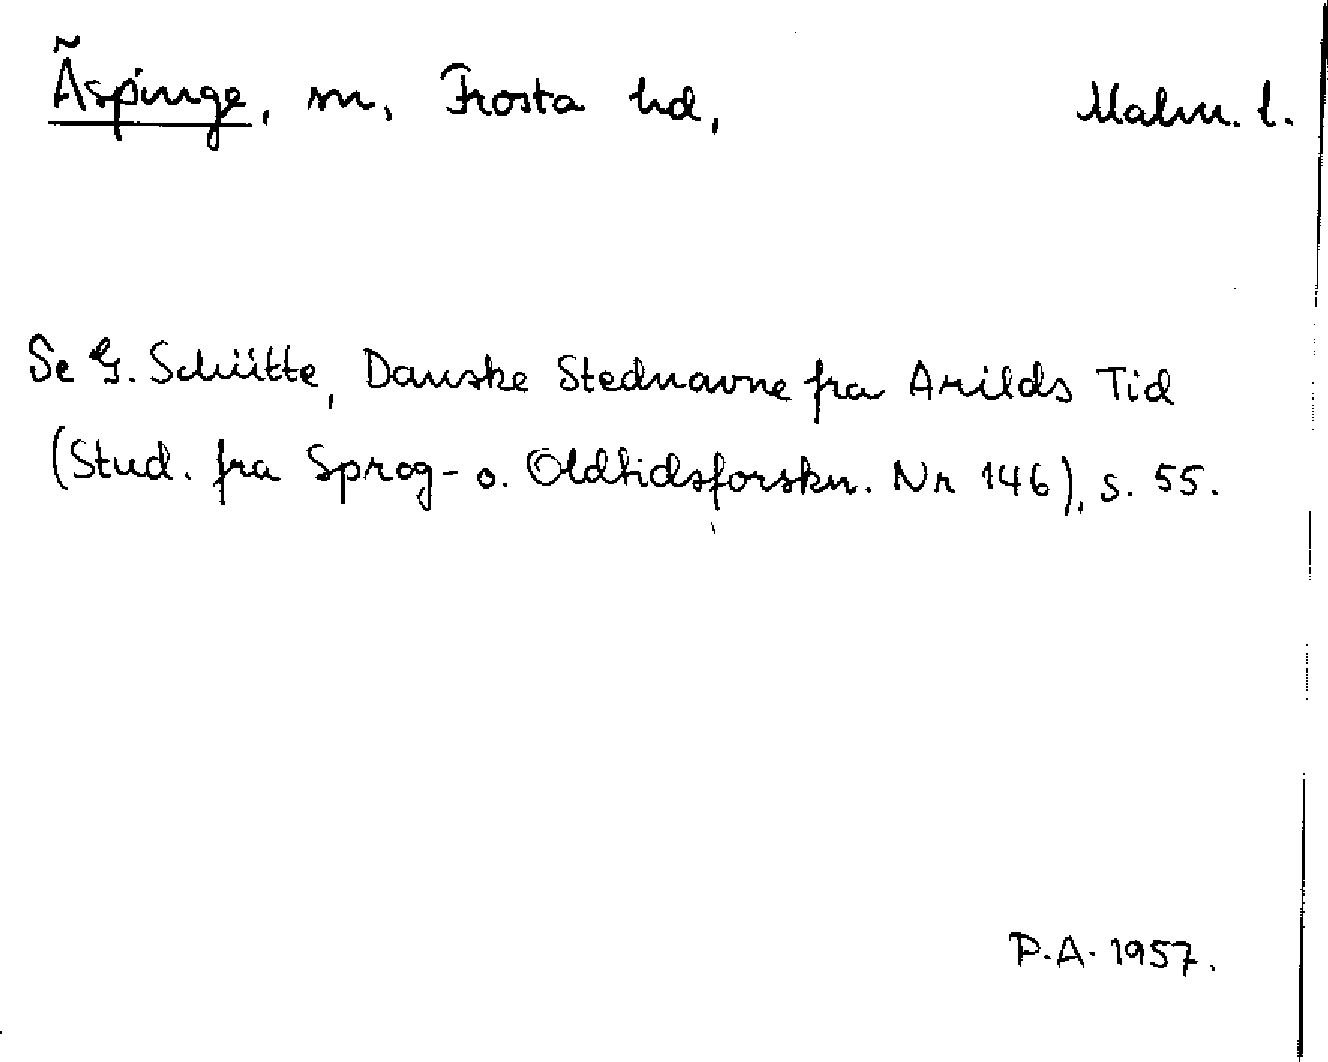 Äspinge, sn, Frosta hd, Malm. l.
Se G. Schütte, Danske Stednavne fra Arilds Tid
(Stud. fra Sprog- o. Oldtidsforskn. Nr 146), s. 55.
P.A. 1957.